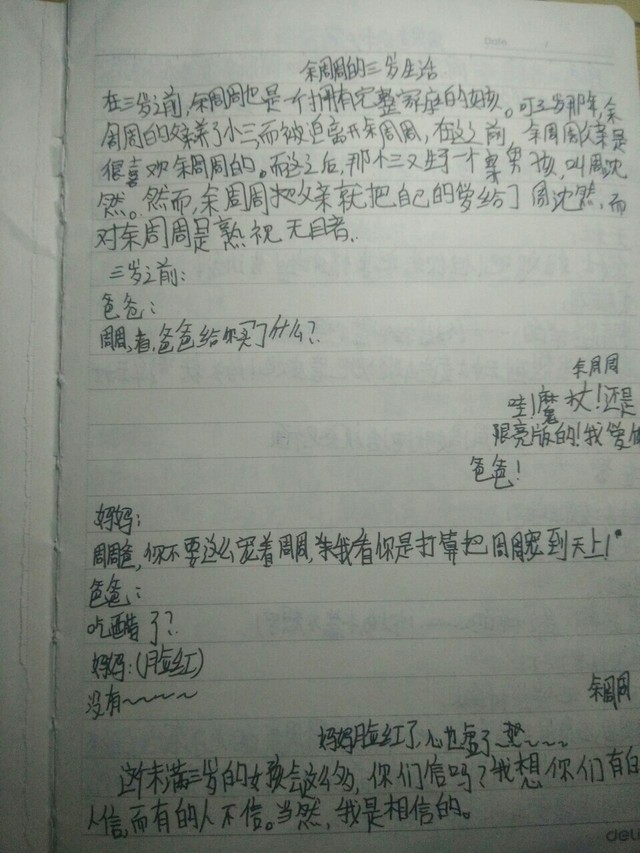 Date
余周周的三岁生活
在三岁之前,余周周也是一个拥有完整家庭的女孩。可三岁那年,余
周周的父亲养了小三而被迫离开余周周,在这之前,余周周父亲是
很喜欢余周周的。而这之后,那小三又生了一个男孩,叫周沈
然。然而,余周周把父亲就把自己的爱给了周沈然,而
对余周周是熟视无目者。
三岁之前:
爸爸:
周周,看,爸爸给你买了什么?
余周周
哇!魔杖!还是
限亮版的!我爱你
爸爸!
妈妈:
周周爸,你不要这么宠着周周,我看你是打算把周周宠到天上!
爸爸:
吃醋了?
妈妈:(脸红)
没有~~~~
余周周
妈妈脸红了,心也虚了~~~~
这个未满三岁的女孩会这么多,你们信吗?我想你们有的
人信,而有的人不信。当然,我是相信的。
deli